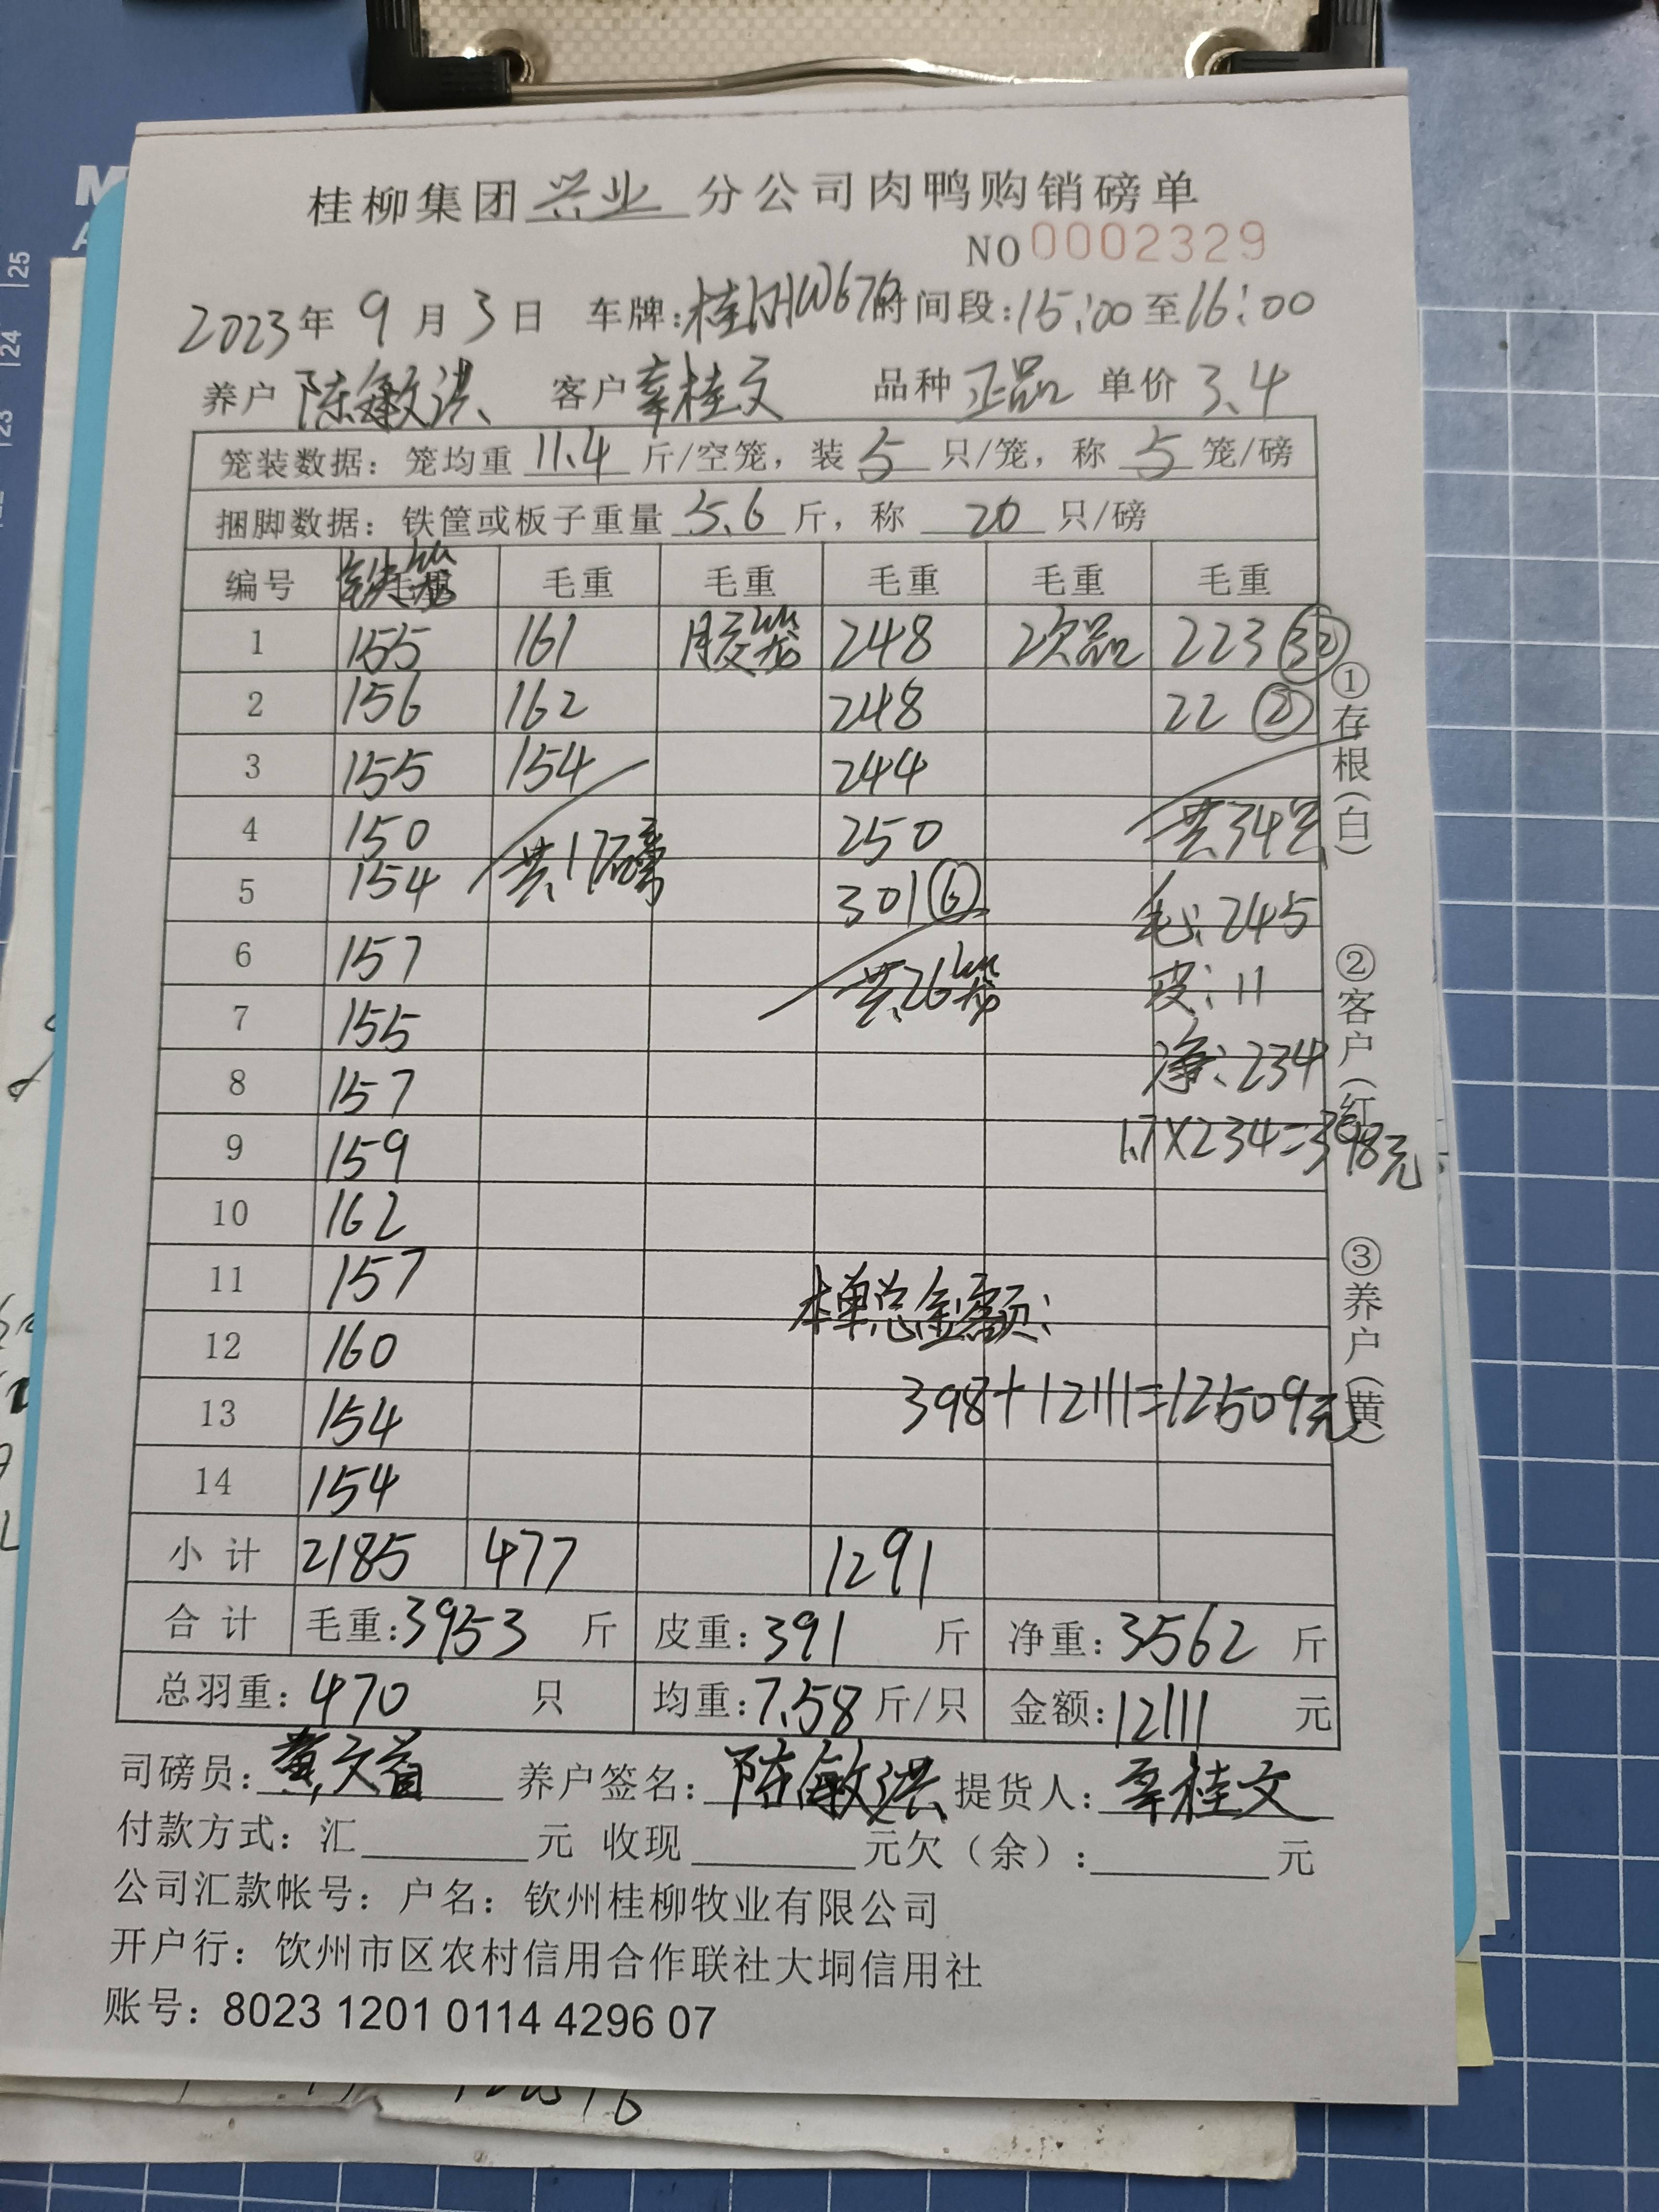 桂柳集团 兴业 分公司肉鸭购销磅单
NO 0002329
2023年 9月 3日 车牌: 时间段:15:00至16:00
养户 陈敏洪 客户 辜桂文 品种 正品 单价 3.4
笼装数据: 笼均重 11.4 斤/空笼, 装 5 只/笼, 称 5 笼/磅
捆脚数据: 铁筐或板子重量 5.6 斤, 称 20 只/磅
编号 铁笼 毛重 毛重 毛重 毛重 毛重
1 155 161 胶笼 248 次品 223 32
2 156 162 248 22 ②
3 155 154 244
4 150 共17磅 250 共34只
5 154 301 ⑥ 毛:245
6 157 共26笼 皮:11
7 155 净:234
8 157
9 159 1.7×234=398元
10 162
11 157 本单总金额:
12 160
13 154 398+12111=12509元
14 154
小计 2185 477 1291
合计 毛重:3953 斤 皮重:391 斤 净重:3562 斤
总羽重:470 只 均重:7.58 斤/只 金额:12111 元
司磅员: 养户签名:陈敏洪 提货人:辜桂文
付款方式: 汇 元 收现 元欠(余): 元
公司汇款帐号: 户名: 钦州桂柳牧业有限公司
开户行: 饮州市区农村信用合作联社大垌信用社
账号: 8023 1201 0114 4296 07
①存根(白) ②客户(红) ③养户(黄)
25
24
23